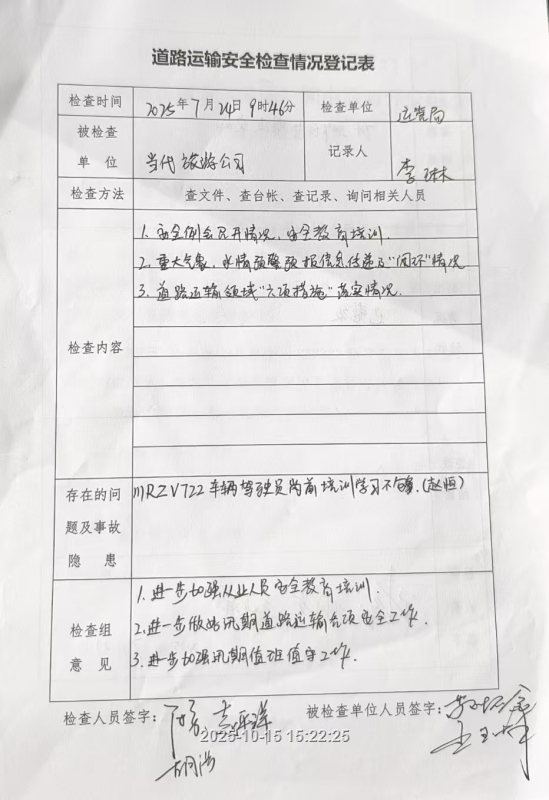 道路运输安全检查情况登记表
检查时间 2025年7月24日9时46分 检查单位 运管局
被检查单位 当代旅游公司 记录人 李琳
检查方法 查文件、查台帐、查记录、询问相关人员
检查内容
1. 安全例会召开情况，安全教育培训.
2. 重大气象，水情预警预报信息传递及"闭环"情况
3. 道路运输领域"六项措施"落实情况.
存在的问题及事故隐患
川RZV722车辆驾驶员岗前培训学习不够.(赵恒)
检查组意见
1. 进一步加强从业人员安全教育培训.
2. 进一步做好汛期道路运输各项安全工作.
3. 进一步加强汛期值班值守工作.
检查人员签字：
被检查单位人员签字：
2025-10-15 15:22:25